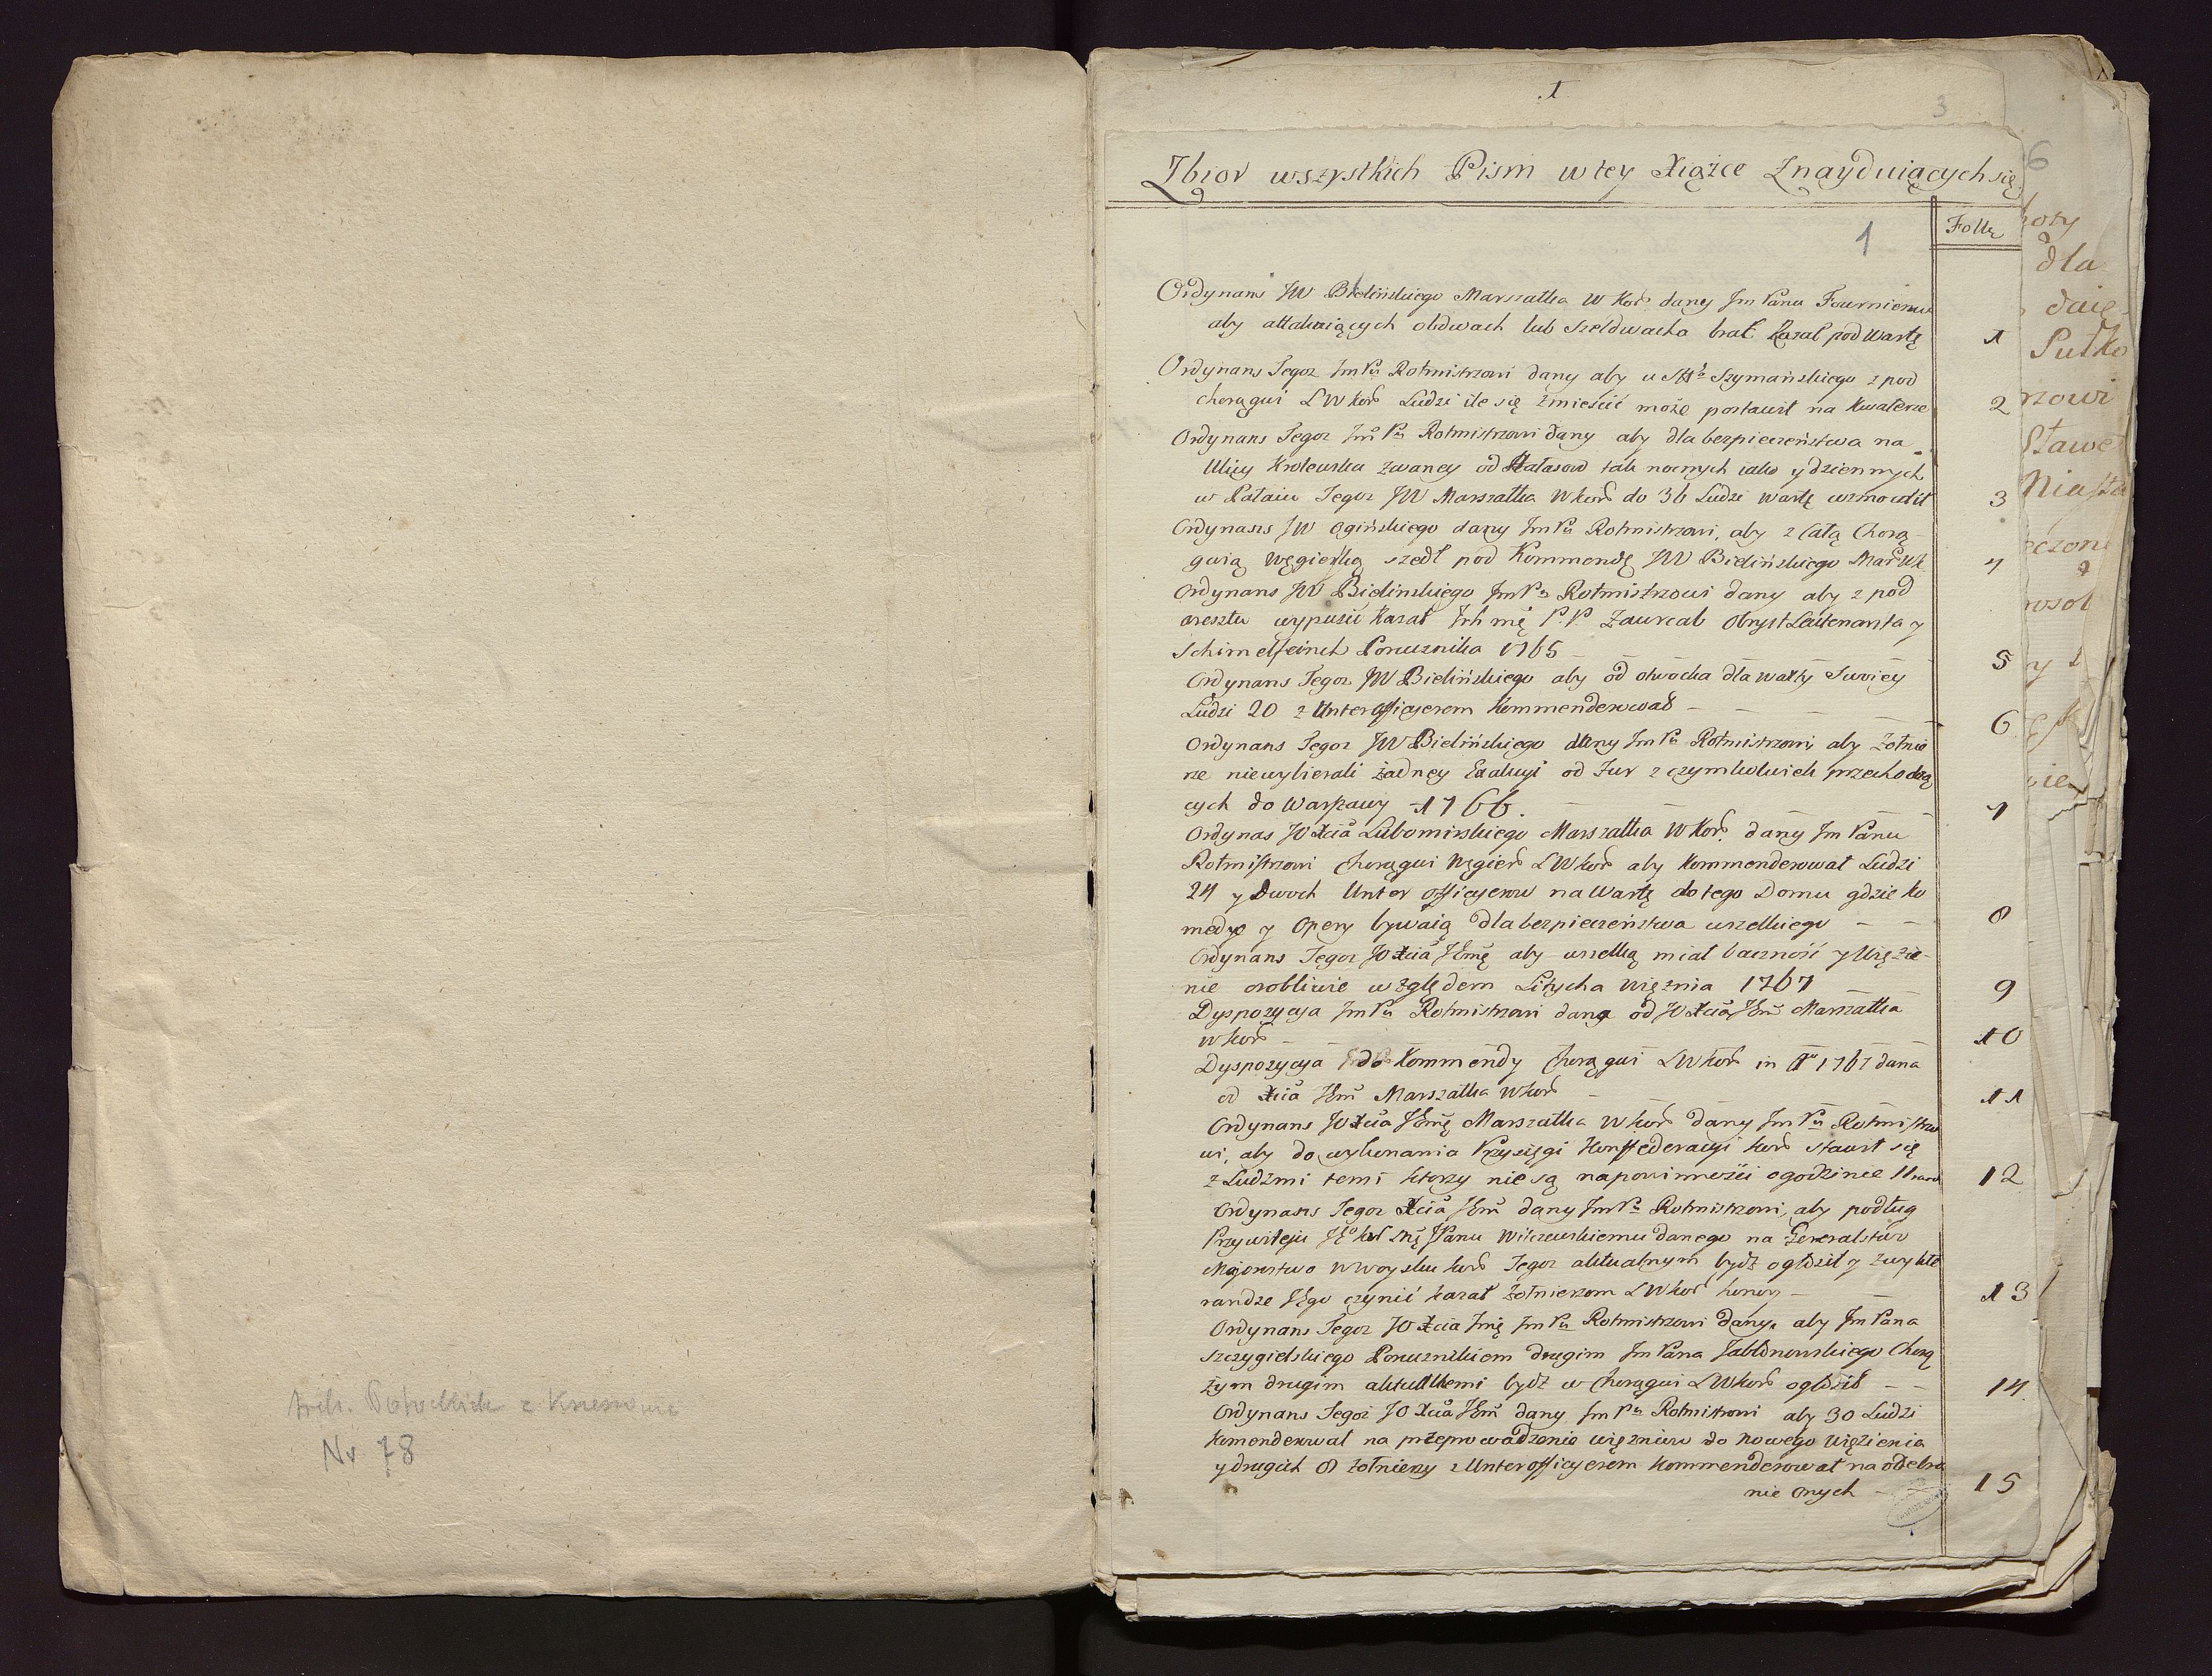 Arch. Potockich z Krzeszowic
Nr 78
1
3
Zbior wszystkich Pism w tey Xiążce Znayduiących się
1
Ordynans JW Bielińskiego Marszałka W Kor dany Jm Panu Fournierowi
aby attakuiących odwach lub Szeldwacha brać kazał pod Wartę 1
Ordynans Tegoz Jm Pu Rotmistrzowi dany aby u Szymańskiego z pod
chorągwi LWkor Ludzi ile się zmieścić może postawił na Kwaterze 2
Ordynans Tegoz Jm Pu Rotmistrzowi dany aby dla bezpieczeństwa na
Ulicy Krolewska zwaney od Hałasow tak nocnych iako y dziennych
w Pałacu Tegoz JW Marszałka Wkor do 36 Ludzi wartę wzmocnił 3
Ordynans JW Ogińskiego dany Jm Pu Rotmistrzowi, aby z Całą Chorą-
gwią Węgierską szedł pod Kommendę JW Bielińskiego Mar Wk 4
Ordynans JW Bielinskiego Jm Pu Rotmistrzowi dany aby z pod
aresztu wypuścić kazał Ich mć P.P. Zawreab Obryst Leitenanta y
Schimelfeinch Porucznika 1765 5
Ordynans Tegoz JW Bielińskiego aby od otwocka dla warty Swoiey
Ludzi 20 z Unterofficyerem kommenderował 6
Ordynans Tegoz JW Bielińskiego dany Jm Pu Rotmistrzowi aby żołnie
rze niewybierali żadney Exakcyi od Fur z czymkolwiek przechodzą
cych do Warszawy 1766. 7
Ordynas JO Xcia Lubomirskiego Marszałka W Kor dany Jm Panu
Rotmistrzowi Chorągwi Węgier LWkor aby kommenderował Ludzi
24 y Dwoch Unter officyerow na Wartę do tego Domu gdzie ko
medye y Opery bywaią dla bezpieczeństwa wszelkiego 8
Ordynans Tegoz JO Xcia JEmć aby wszelką miał baczność y Więzie-
nie osobliwie względem Litycha więźnia 1767 9
Dyspozycya Jm Pu Rotmistrzowi dana od JO Xcia JEm Marszałka
W kor 10
Dyspozycya do Kommendy Chorągwi LWkor in Ao 1767 dana
od Xcia JEm Marszałka Wkor 11
Ordynans JO Xcia JEmć Marszałka W kor dany Jm Pu Rotmistrzo
wi, aby do wykonania Przysięgi Konffederacyi kor stawił się
z Ludzmi temi ktorzy nie są na powinności o godzinie 11 12
Ordynans Tegoz Xcia JEm dany Jm Pu Rotmistrzowi, aby podług
Przywileju JPanu Wilczewskiemu danego na Generalstwo
Majorstwo w Woysku kor Tegoz aktualnym bydź ogłosił y zwykłe
randze JEgo czynić kazał Żołnierzom LWkor honory 13
Ordynans Tegoz JO Xcia Jmć Jm Pu Rotmistrzowi dany, aby Jm Pana
Szczygielskiego Porucznikiem drugim Jm Pana Jabłonowskiego Chorą
żym drugim aktualnemi bydź w Chorągwi LWkor ogłosił 14
Ordynans Tegoz JO Xcia JEm dany Jm Pu Rotmistrzowi aby 30 Ludzi
komenderował na przeprowadzenie więzniow do Nowego Więzienia
y drugich 8 żołnierzy z Unterofficyerem kommenderował na odebra
nie onych 15
6
dla
Pułko
rzowi